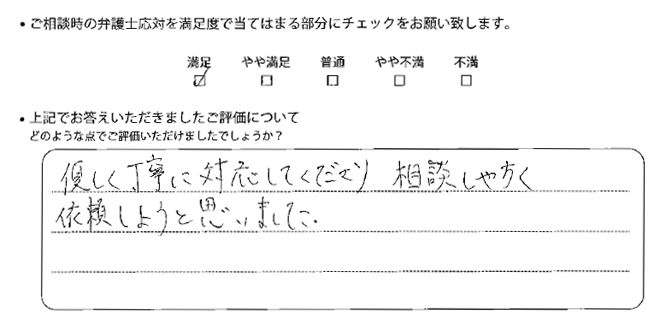 ・ご相談時の弁護士応対を満足度で当てはまる部分にチェックをお願い致します。
満足 やや満足 普通 やや不満 不満
☑ □ □ □ □
・上記でお答えいただきましたご評価について
どのような点でご評価いただけましたでしょうか?
優しく丁寧に対応してくださり 相談しやすく
依頼しようと思いました.